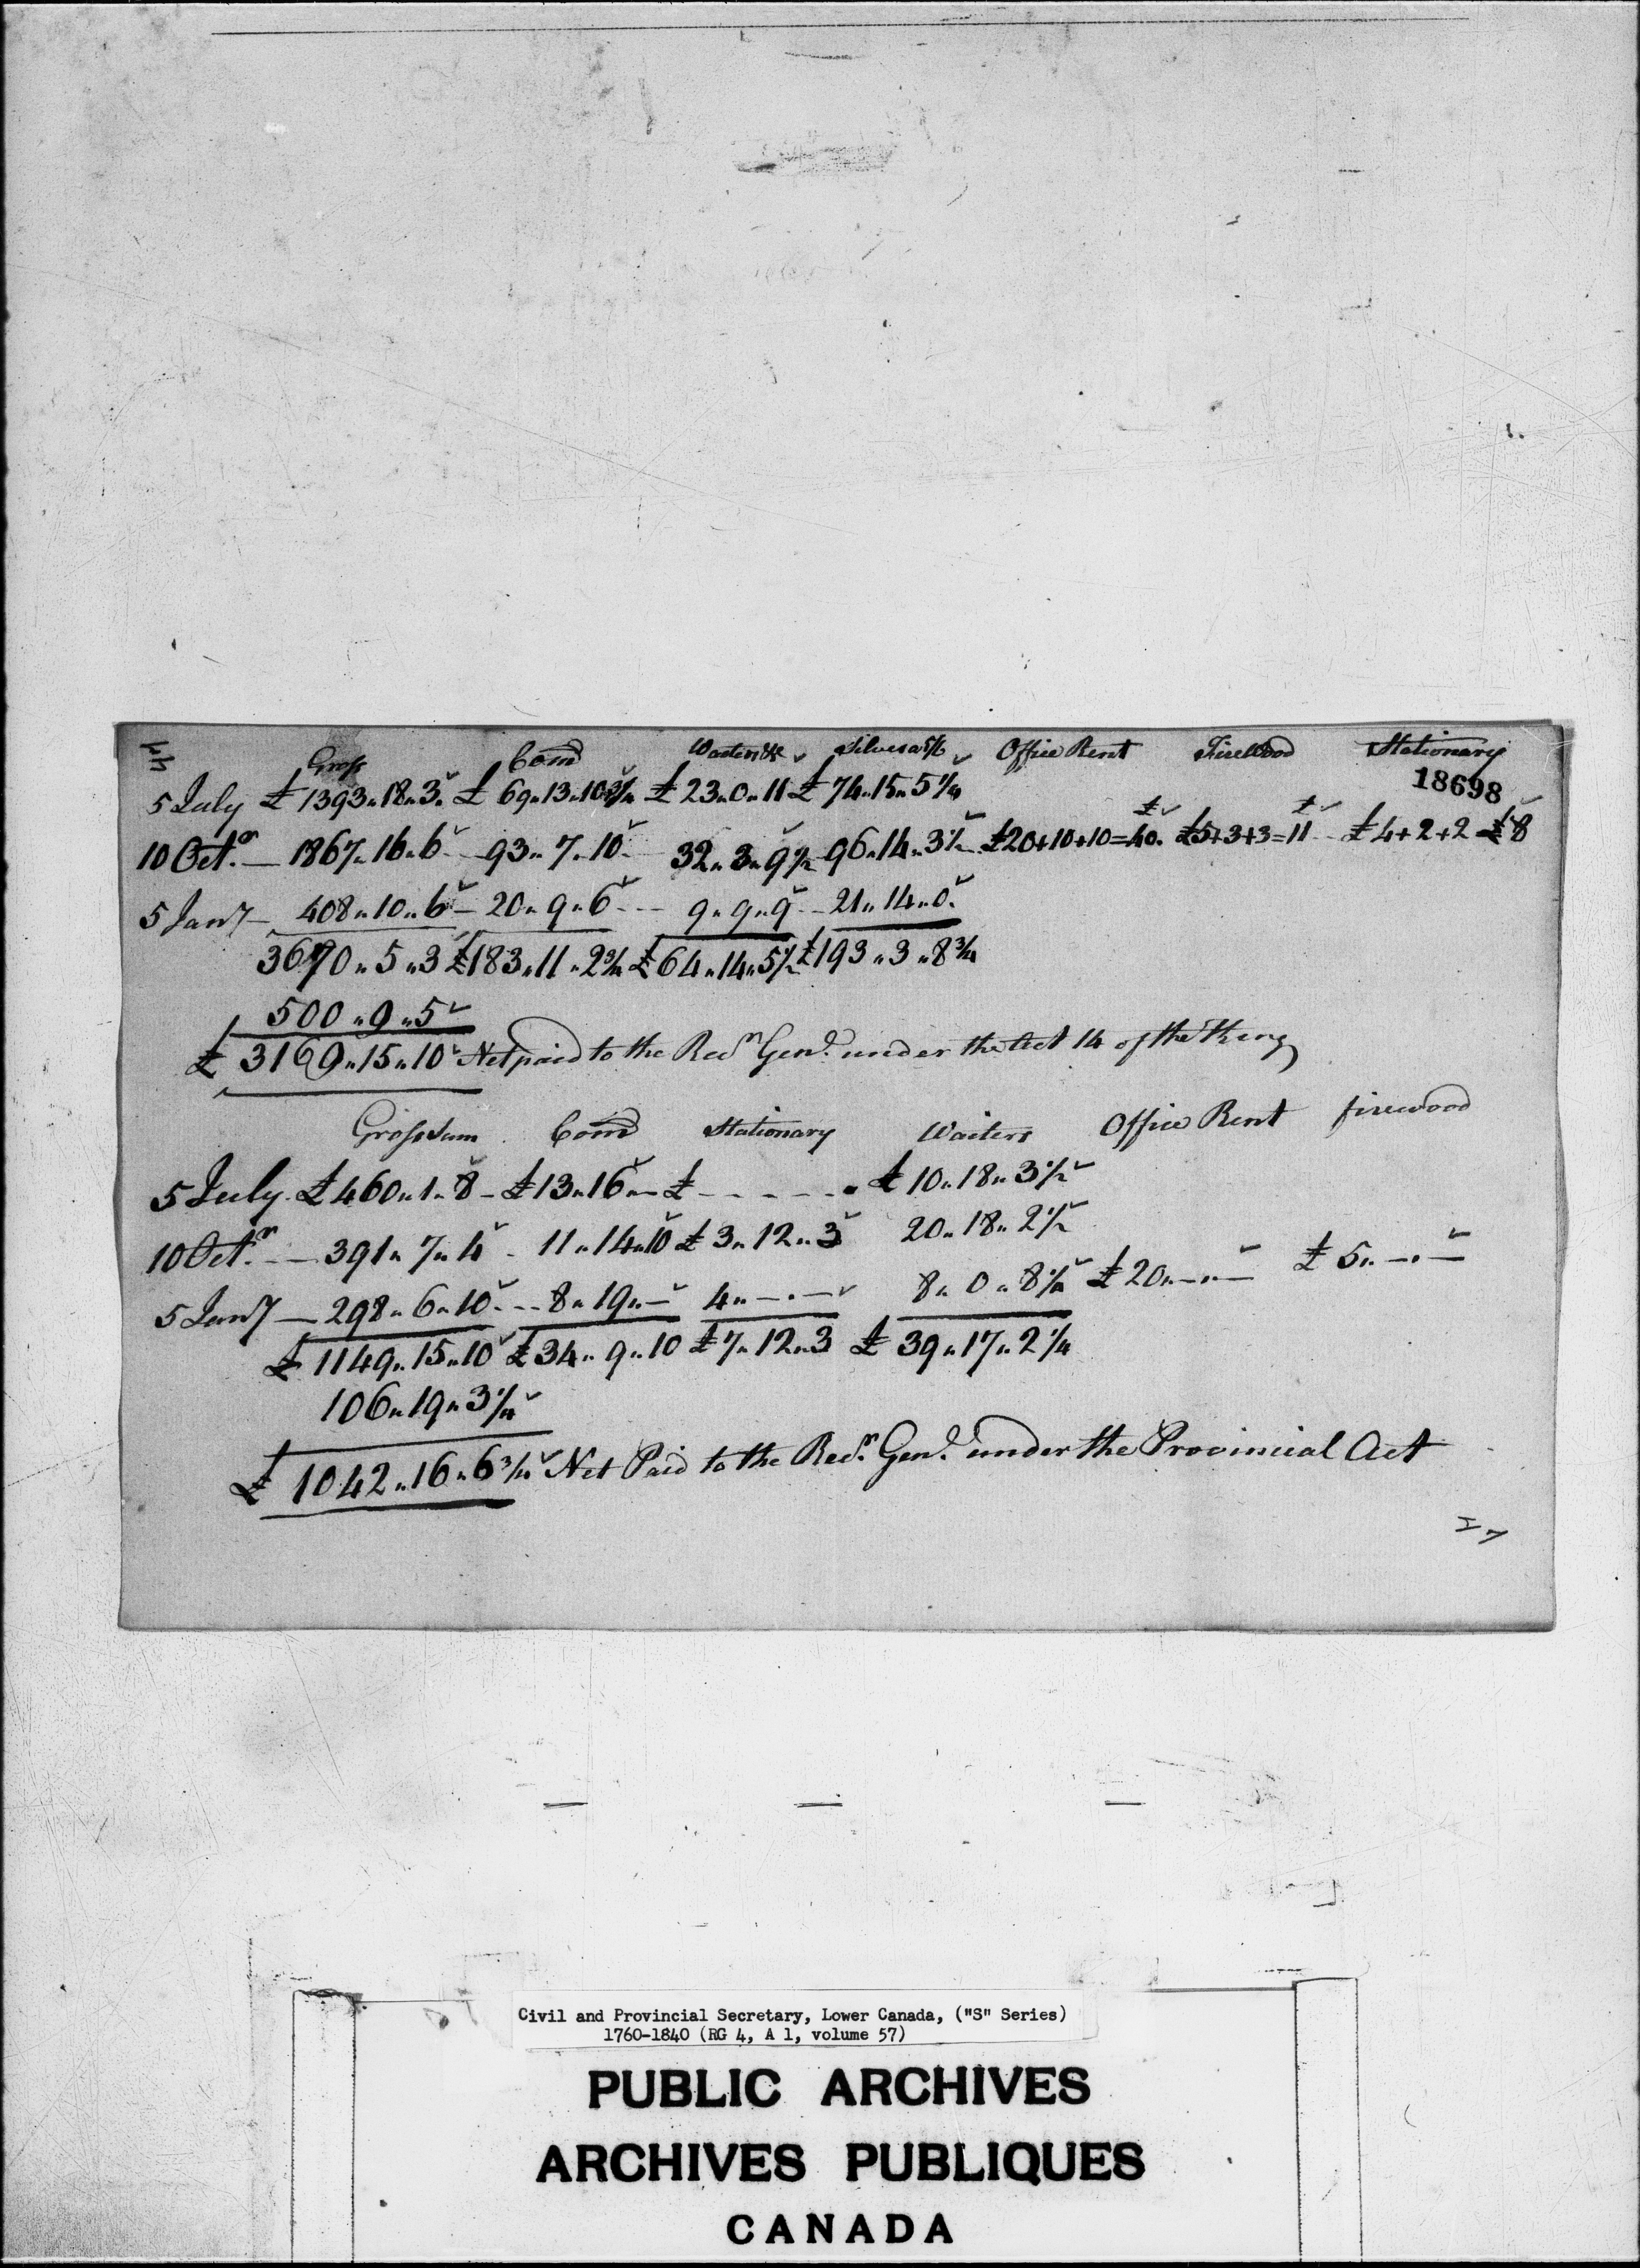 Gross Com͞d Waiters &c Silver a 5/6 Office Rent Firewood Stationary
18698
5 July £1393"18"3 £69"13"10¾ £23"0"11 £74"15"5¼
10 Oct.r — 1867"16"6 93"7"10 32"3"9½ 96"14"3½ £20+10+10=£40. £5+3+3=£11 £4+2+2 £8
5 Jany — 408"10"6 — 20"9"6 9"9"9 21"14"0
3670"5"3 £183"11"2¾ £64"14"5½ £193"3"8¾
500"9"5
£3169"15"10 Net paid to the Recr Genl under the Act 14 of the King
Gross sum Com͞d Stationary Waiters Office Rent firewood
5 July. £460"1"8 — £13"16"— £ - - - - £10"18"3½
10 Oct.r — 391"7"4 11"14"10 £3"12"3 20"18"2½
5 Jany — 298"6"10 8"19"— 4"—"— 8"0"8¼ £20"—"— £5"—"—
£1149"15"10 £34"9"10 £7"12"3 £39"17"2¼
106"19"3¼
£1042"16"6¾ Net Paid to the Recr Genl under the Provincial Act
Civil and Provincial Secretary, Lower Canada, ("S" Series)
1760-1840 (RG 4, A 1, volume 57)
PUBLIC ARCHIVES
ARCHIVES PUBLIQUES
CANADA